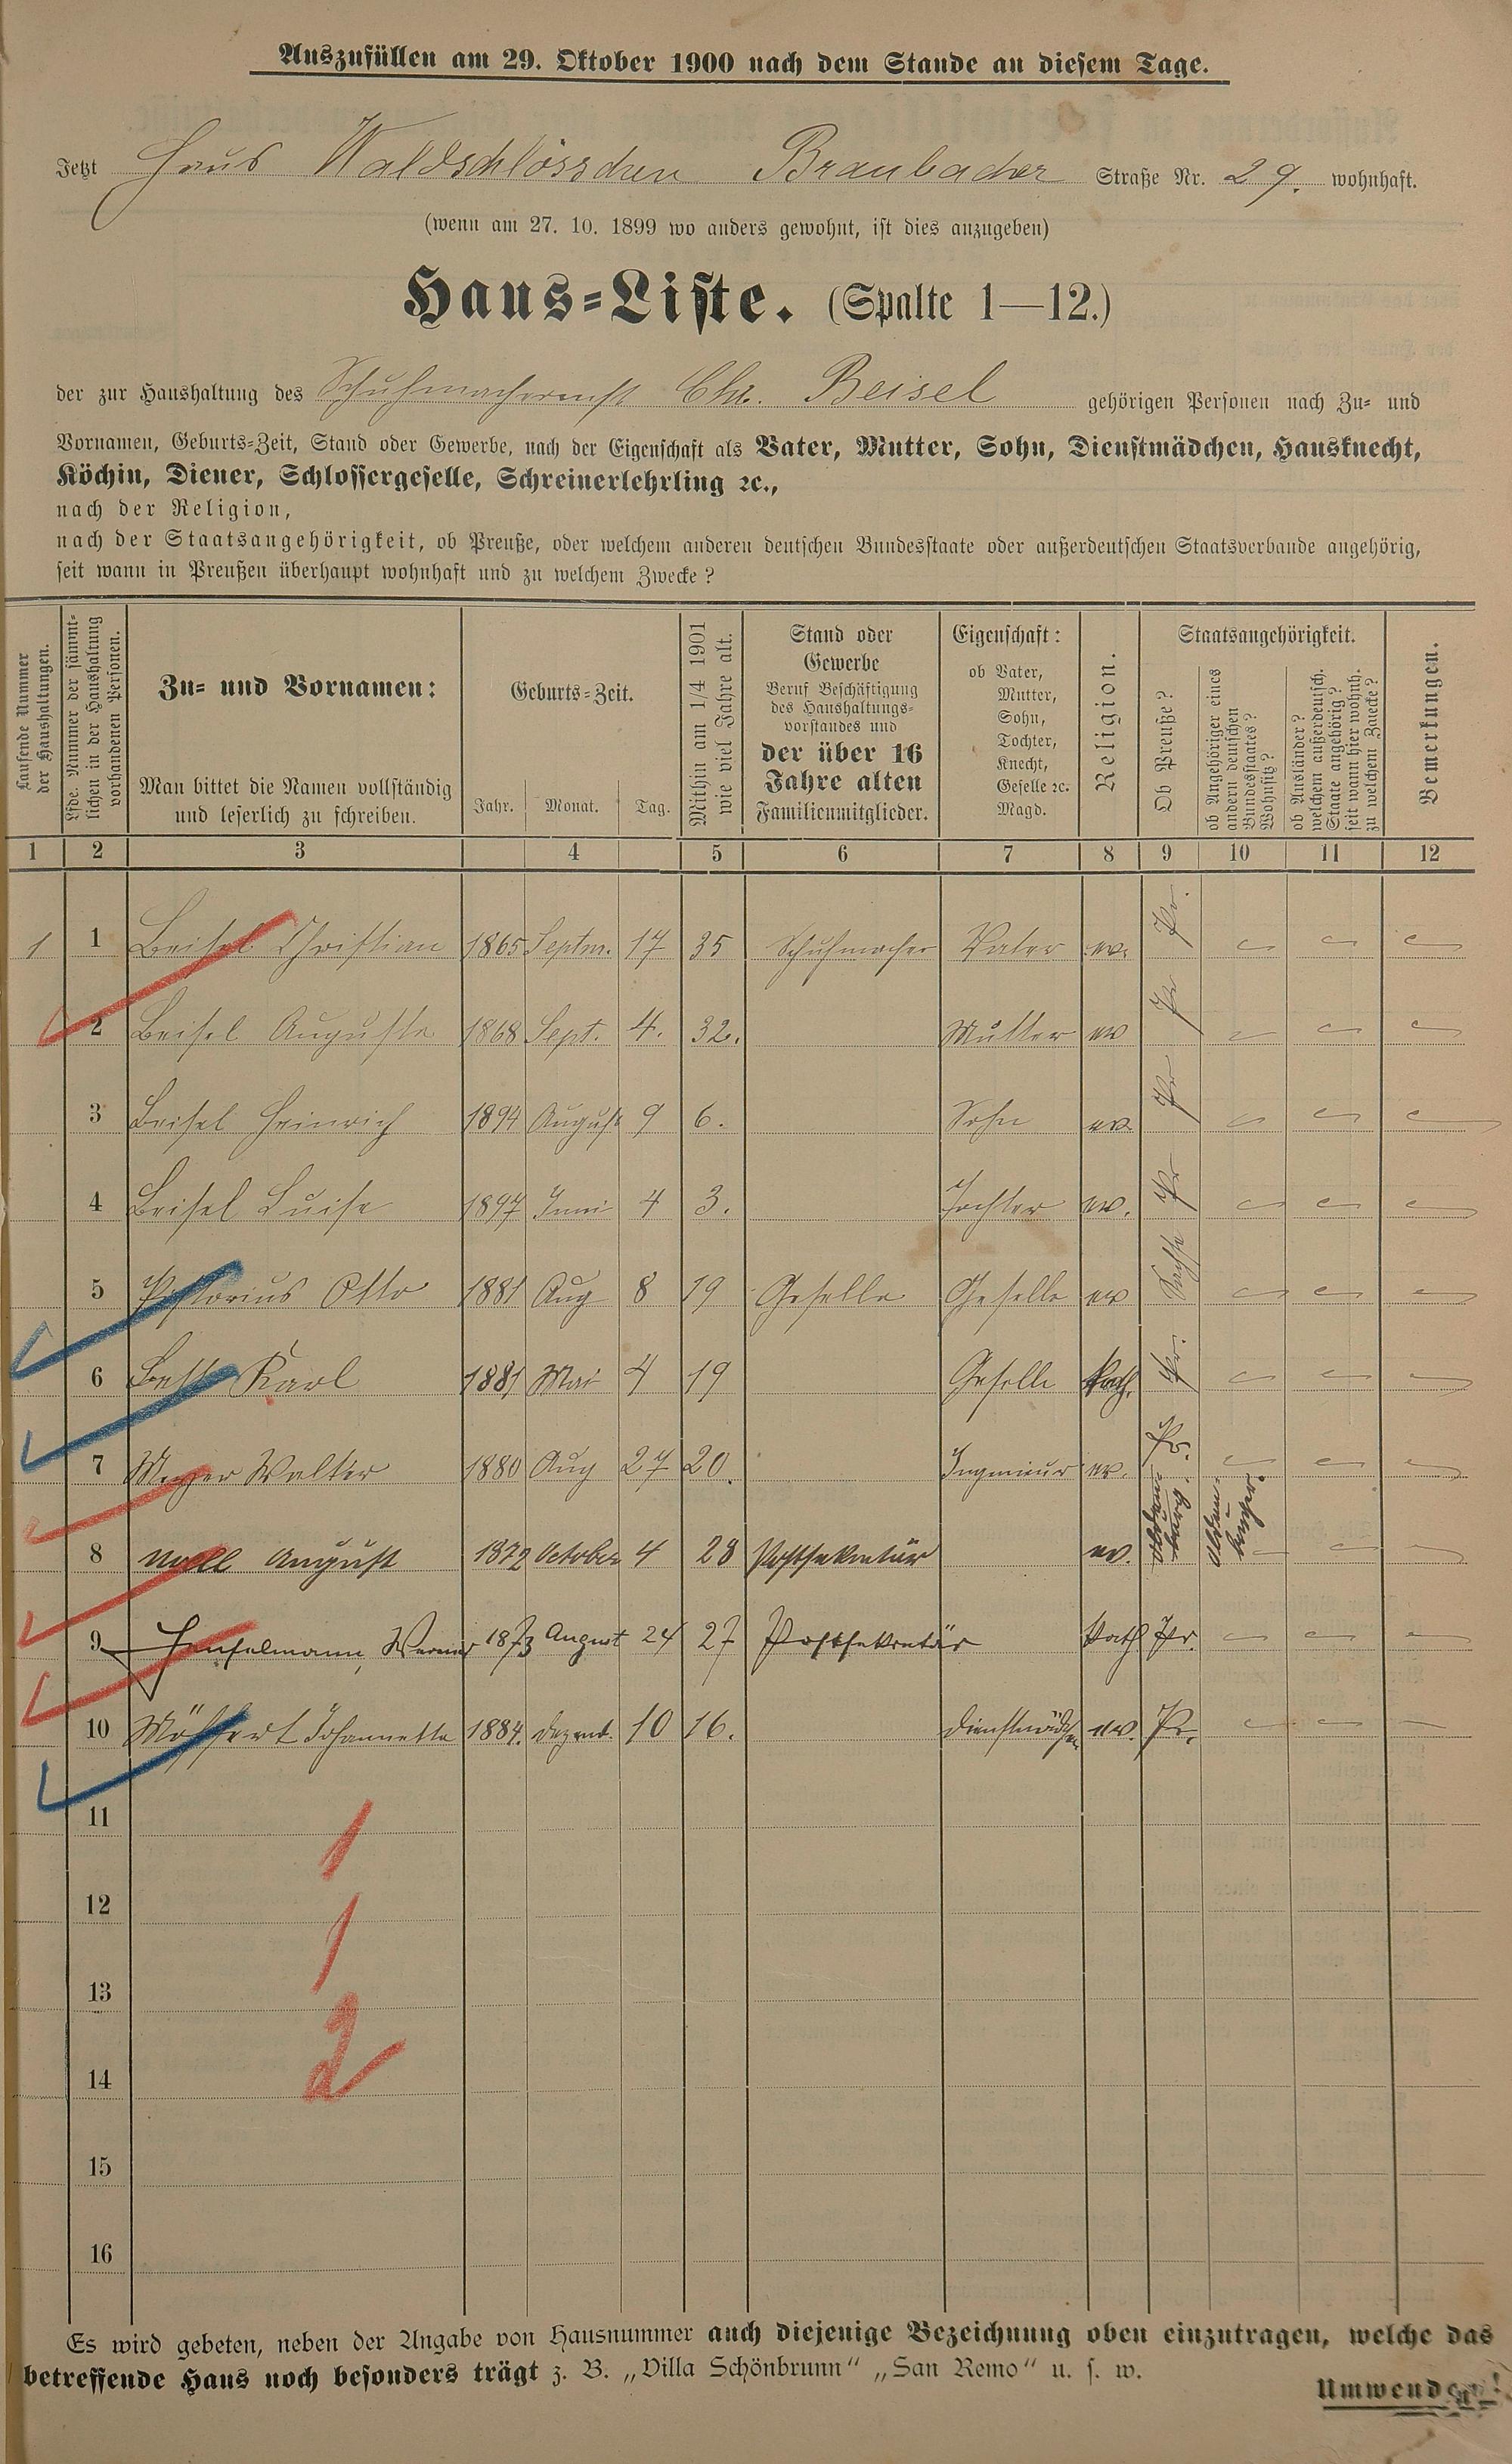 Auszufüllen am 29. Oktober 1900 nach dem Stande an diesem Tage.
Jetzt Haus Waldschlösschen Braubacher Straße Nr. 29. wohnhaft.
(wenn am 27. 10. 1899 wo anders gewohnt, ist dies anzugeben)
Haus=Liste. (Spalte 1—12.)
der zur Haushaltung des Chr. Beisel gehörigen Personen nach Zu= und
Vornamen, Geburts=Zeit, Stand oder Gewerbe, nach der Eigenschaft als Vater, Mutter, Sohn, Dienstmädchen, Hausknecht,
Köchin, Diener, Schlossergeselle, Schreinerlehrling ꝛc.,
nach der Religion,
nach der Staatsangehörigkeit, ob Preuße, oder welchem anderen deutschen Bundesstaate oder außerdeutschen Staatsverbande angehörig,
seit wann in Preußen überhaupt wohnhaft und zu welchem Zwecke?
Laufende Nummer
der Haushaltungen.
Lfde. Nummer der sämmt-
lichen in der Haushaltung
vorhandenen Personen.
Zu= und Vornamen:
Man bittet die Namen vollständig
und leserlich zu schreiben.
Geburts=Zeit.
Jahr. Monat. Tag.
Mithin am 1/4 1901
wie viel Jahre alt.
Stand oder
Gewerbe
Beruf Beschäftigung
des Haushaltungs=
vorstandes und
der über 16
Jahre alten
Familienmitglieder.
Eigenschaft:
ob Vater,
Mutter,
Sohn,
Tochter,
Knecht,
Geselle ꝛc.
Magd.
Religion.
Staatsangehörigkeit.
Ob Preuße?
ob Angehöriger eines
andern deutschen
Bundesstaates?
Wohnsitz?
ob Ausländer?
welchem außerdeutsch.
Staate angehörig?
seit wann hier wohnh.
zu welchem Zwecke?
Bemerkungen.
1 2 3 4 5 6 7 8 9 10 11 12
1 1 Beisel Christian 1865 Septm. 17 35 Schuhmacher Vater ev. Pr.
2 Beisel Auguste 1868 Sept. 4. 32. Mutter ev Pr
3 Beisel Heinrich 1894 August 9 6. Sohn ev. Pr
4 Beisel Luise 1897 Juni 4 3. Tochter ev. Pr
5 Pistorius Otto 1881 Aug 8 19 Geselle Geselle ev Sachse
6 Karl 1881 Mai 4 19 Geselle Kath. Pr.
7 Meyer Walter 1880 Aug 27 20. Ingenieur ev. Pr.
8 August 1872 October 4 28 Postsekretär ev. Olden-
burg. Olden-
burger.
9 Henselmann, Werner 1873 August 24 27 Postsekretär Kath Pr.
10 Johannette 1884. Dezemb. 10 16. Dienstmädchen ev. Pr.
11
1
12
1
13
2
14
15
16
Es wird gebeten, neben der Angabe von Hausnummer auch diejenige Bezeichnung oben einzutragen, welche das
betreffende Haus noch besonders trägt z. B. „Villa Schönbrunn“ „San Remo“ u. s. w.
Umwenden!